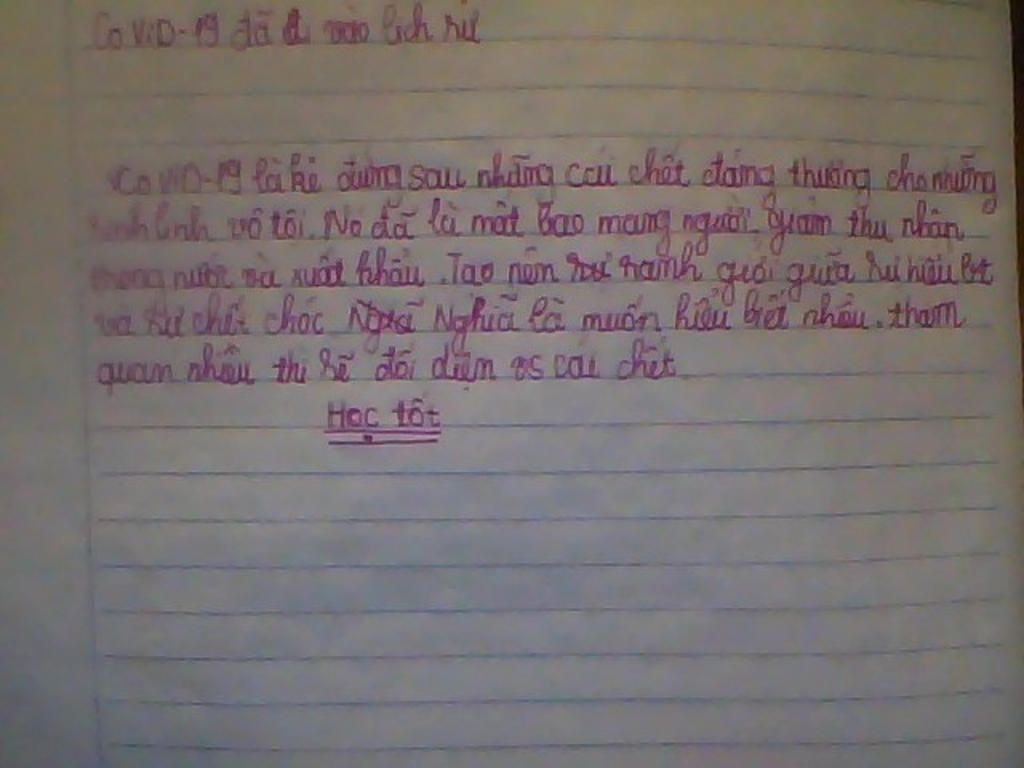 CoViD-19 đã đi vào lịch sử
CoViD-19 là kẻ đứng sau những cái chết đáng thương cho những
sinh linh vô tội. Nó đã là mất bao mạng người. giảm thu nhân
trong nước và xuất khẩu. Tạo nên sự ranh giới giữa sự hiểu biết
và sự chết chóc Nghĩa là muốn hiểu biết nhều. tham
quan nhều thì sẽ đối diện vs cái chết
Học tốt